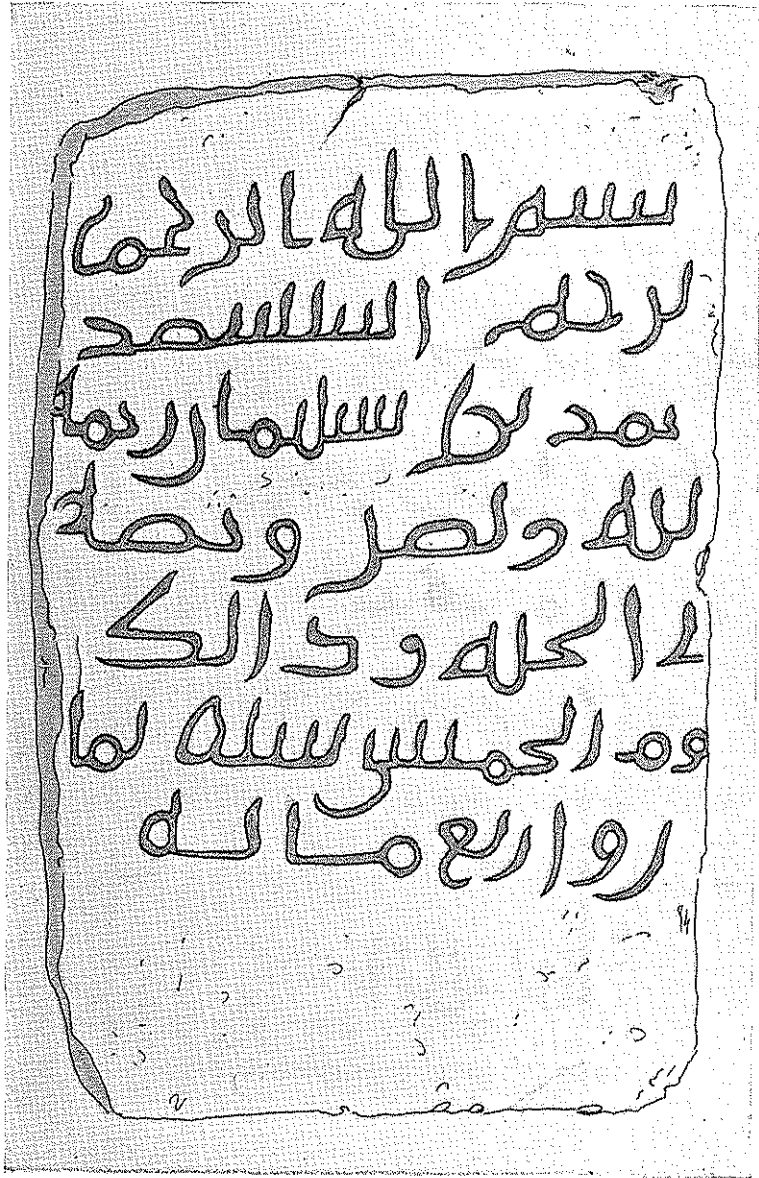 بسم الله الرحمن
لرحيم استشهد
محمد بن سليمان رحمه
لله ونصر
الجنة وذالك
يوم الخميس سنة ثما
ن واربع مائة